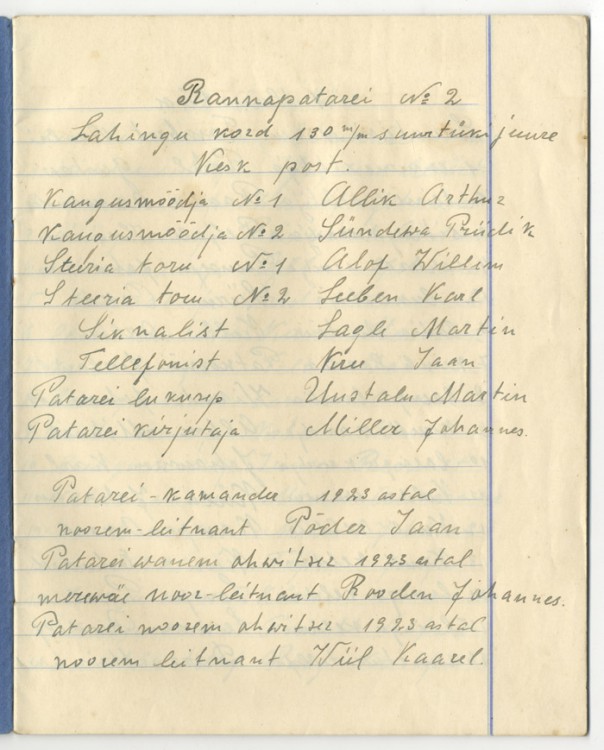 Rannapatarei № 2
Lahingu kord 130 m/m suurtükijuure
Kesk post.
Kaugusmõõdja № 1 Allik Arthur
Kaugusmõõdja № 2 Sündewa Priidik
Steeria toru № 1 Alof Willem
Steeria toru № 2 Leeben Karl
Siknalist Lagle Martin
Tellefonist Kuu Jaan
Patarei lukusep Uustalu Martin
Patarei kirjutaja Miller Johannes.
Patarei-kamander 1923 astal
noorem-leitnant Põder Jaan
Patarei wanem ohwitser 1923 astal
merewäe noor-leitnant Rooden Johannes.
Patarei noorem ohwitser 1923 astal
noorem leitnant Wiil Kaarel.